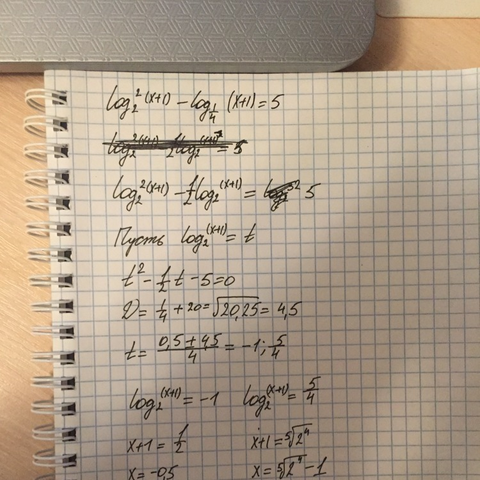 log₂²(x+1) - log_{1/4}(x+1) = 5
log₂²(x+1) - 1/2 log₂(x+1) = 5
Пусть log₂(x+1) = t
t² - 1/2 t - 5 = 0
D = 1/4 + 20 = √20,25 = 4,5
t = (0,5 + 4,5)/4 = -1; 5/4
log₂(x+1) = -1 log₂(x+1) = 5/4
x+1 = 1/2 x+1 = ⁵√2⁴
x = -0,5 x = ⁵√2⁴ - 1